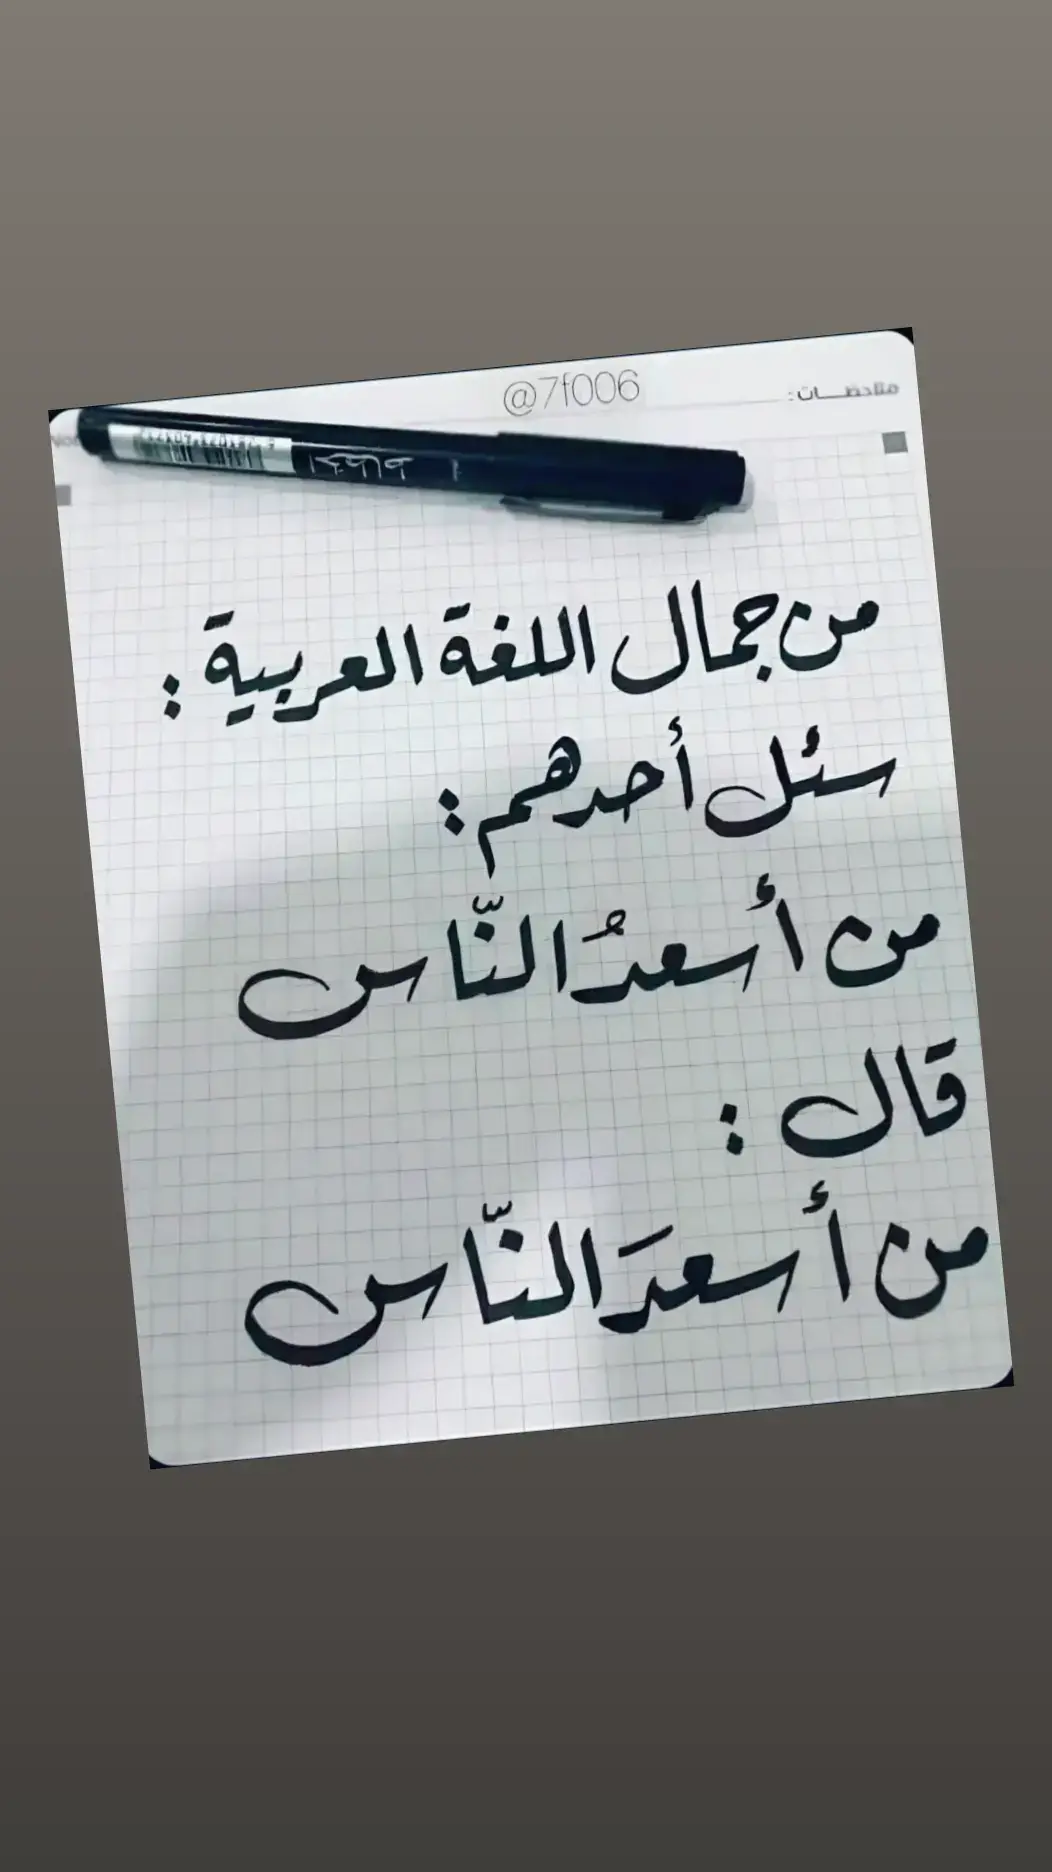 @7f006
ملاحظـــات :
من جمال اللغة العربية :
سئل أحدهم :
من أسعدُ النّاس
قال :
من أسعدَ النّاس